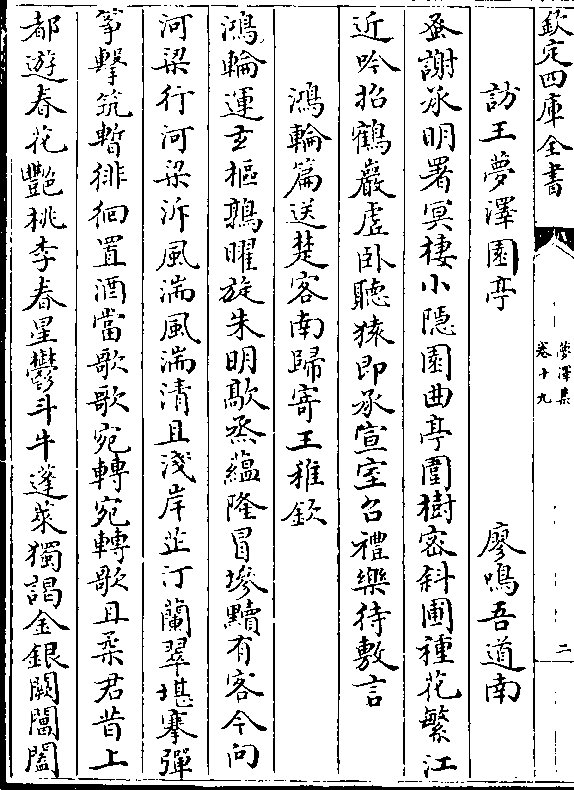 欽定四庫全書
夢澤集
卷十九
二
訪王夢澤園亭　廖鳴吾道南
蚤謝承明署冥棲小隱園曲亭圍樹密斜圃種花繁江
近吟招鶴巖虛卧聽猿即承宣室召禮樂待敷言
鴻輪篇送楚客南歸寄王稚欽
鴻輪運玄樞鶉曜旋朱明歊烝蘊隆冒墋黷有客今向
河梁行河梁泝風湍風湍清且淺岸芷汀蘭翠堪搴彈
箏擊筑暫徘徊置酒當歌歌宛轉宛轉歌且柔君昔上
都遊春花艷桃李春星鬱斗牛蓬萊獨謁金銀闕閶闔